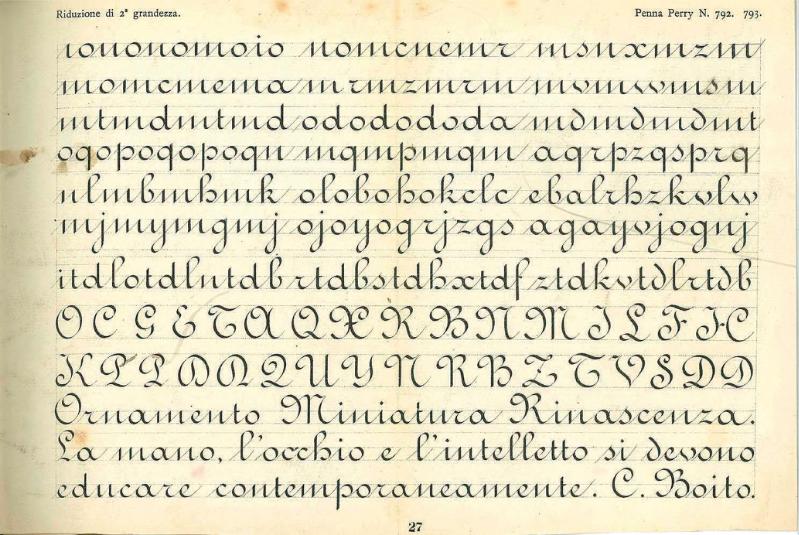 Riduzione di 2ª grandezza. Penna Perry N. 792. 793.
iouonomoio nomcnemr msnxmzm
momcmema m rmzmrm mvmwmsm
mtmdmtmd ododododa mdmdmdmt
oqopoqopoqn mqmpmqm aqrpzqsprq
nlmbmhmk olobohokclc ebalrhzkvlw
mjmymgmj ojoyogrjzgs agayvjognj
itdlotdlntdb rtdbstdhxtdf ztdkvtdlrtdb
O C G E T A Q X R B N M I L F H C
K P P D D Q U Y N R B Z T V S D D
Ornamento Miniatura Rinascenza.
La mano, l'occhio e l'intelletto si devono
educare contemporaneamente. C. Boito.
27